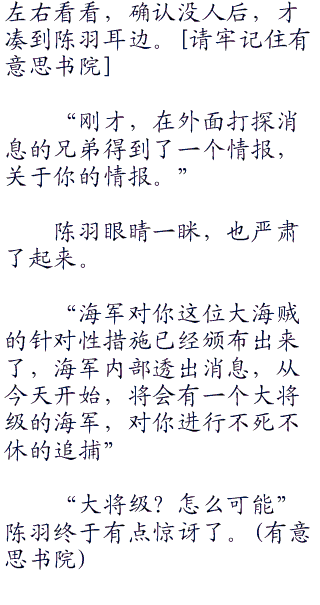 左右看看，确认没人后，才
凑到陈羽耳边。[请牢记住有
意思书院]
“刚才，在外面打探消
息的兄弟得到了一个情报，
关于你的情报。”
陈羽眼睛一眯，也严肃
了起来。
“海军对你这位大海贼
的针对性措施已经颁布出来
了，海军内部透出消息，从
今天开始，将会有一个大将
级的海军，对你进行不死不
休的追捕”
“大将级？怎么可能”
陈羽终于有点惊讶了。(有意
思书院)